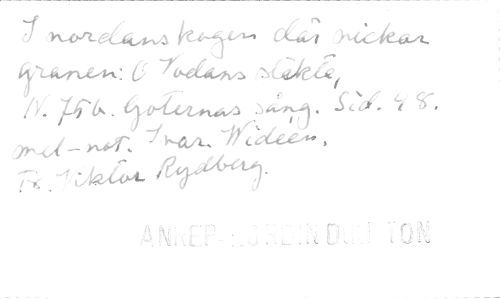 I nordanskogen där nickar
granen: O Vodans släkte,
N. 75b. Goternas sång. Sid. 48.
mel-not. Ivar. Widéen.
Tx. Viktor Rydberg.